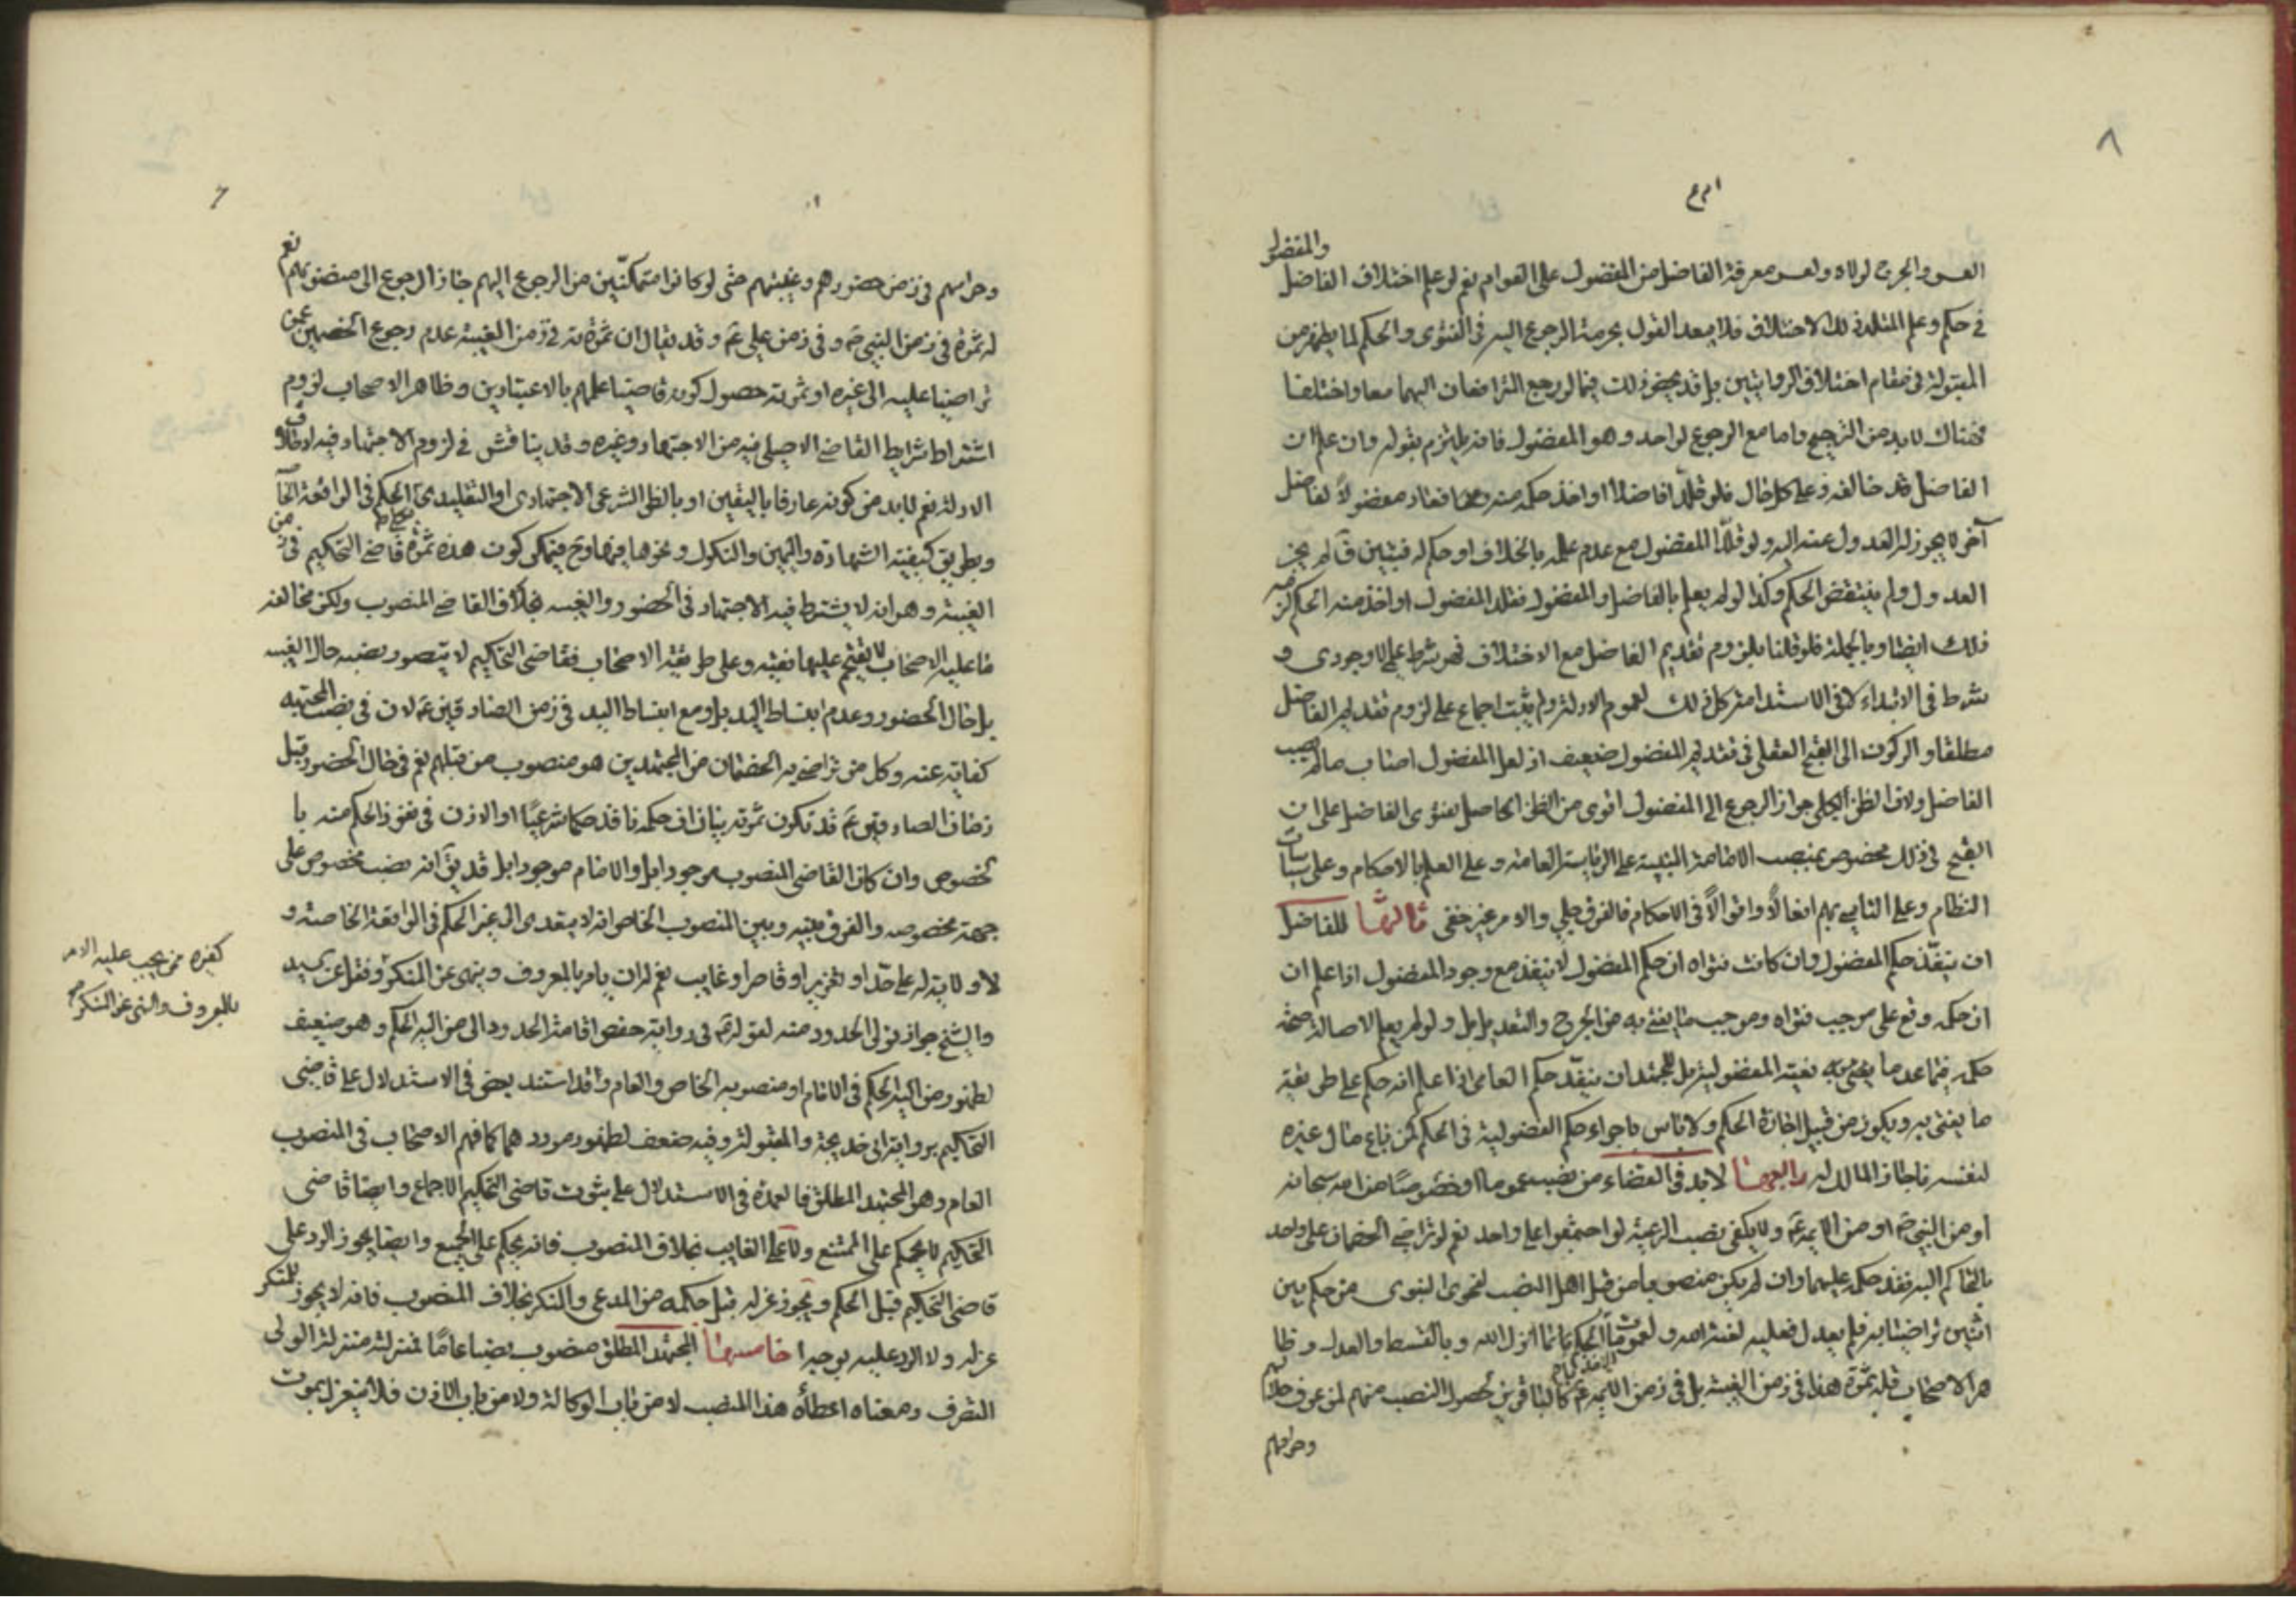 ٨
والمفضول
العسر والحرج لولاه ولعسر معرفة الفاضل من المفضول على العوام نعم لو علم اختلاف الفاضل
في حكم وعلم المقلد ذلك الاختلاف فلا يبعد القول بحرمة الرجوع اليه في الفتوى والحكم لما يظهر من
المقبولة في مقام اختلاف الروايتين بل قد يخص ذلك فيما لو رجع المترافعان اليهما معا واختلفا
فهناك لابد من الترجيح واما مع الرجوع لواحد وهو المفضول فانه يلتزم بقوله وان علم ان
الفاضل قد خالفه وعلى كل حال فلو قلد فاضلا او اخذ حكمه منه فعاد مفضولا لفاضل
آخر لا يجوز له العدول عنه اليه ولو قلد المفضول مع عدم علمه بالخلاف او حكم له فتبين لم يجز
العدول ولم ينتقض الحكم وكذا لو لم يعلم بالفاضل والمفضول فقلد المفضول او اخذ منه الحكم
ذلك ايضا وبالجملة فلو قلنا بلزوم تقديم الفاضل مع الاختلاف فهو شرط علمي لا وجودي و
شرط في الابتداء لا في الاستدامة كل ذلك لعموم الادلة ولم يثبت اجماع على لزوم تقديم الفاضل
مطلقا والركون الى القبح العقلي في تقديم المفضول ضعيف اذ لعل المفضول اصاب ما لم يصب
الفاضل ولان الظن الكلي بجواز الرجوع الى المفضول اقوى من الظن الحاصل بفتوى الفاضل على ان
القبح في ذلك مخصوص بمنصب الامامة المبنية على الرياسة العامة وعلى العلم بالاحكام وعلى سياسات
النظام وعلى التاسي بهم افعالا واقوالا في الاحكام فالفرق جلي والامر غير خفي ثالثها للفاضل
ان ينفذ حكم المفضول وان كانت فتواه ان حكم المفضول لا ينفذ مع وجود المفضول اذا علم ان
ان حكمه وقع على موجب فتواه وموجب ما يفتي به من الجرح والتعديل بل ولو لم يعلم الاصالة صحة
حكمه فيما عدا ما يفتي به بغيته المفضولية بل للمجتهد ان ينفذ حكم العامي اذا علم انه حكم على طريقة
ما يفتى به ويكون من قبيل اجازة الحكم ولا باس باجراء حكم الفضولية في الحكم كمن باع مال غيره
لنفسه فاجاز المالك له رابعها لابد في القضاء من نصب عموما او خصوصا من الله سبحانه
او من النبي ص او من الائمة ع ولا يكفي نصب الرعية لو اجتمعوا على واحد نعم لو تراضى الخصمان على واحد
بالتحاكم اليه نفذ حكمه عليهما وان لم يكن منصوبا من قبل اهل النصب لفحوى النبوي من حكم بين
اثنين تراضيا به فلم يعدل فعليه لعنة الله ولعمومات الحكم بما انزل الله وبالقسط والعدل وظا
هر الاصحاب قلة ثمرة هذا في زمن الغيبة بل في زمن الائمة ع كالباقرين لحصول النصب منهم لمن عرف حلالهم
وحرامهم
وحرامهم في زمن حضورهم وغيبتهم حتى لو كانوا متمكنين من الرجوع اليهم جاز الرجوع الى منصوبهم نعم
له ثمرة في زمن النبي ص وفي زمن علي ع وقد يقال ان ثمرته في زمن الغيبة عدم رجوع الخصمين عمن
تراضيا عليه الى غيره او ثمرته حصول كونه قاضيا عليهم بالاعتبارين وظاهر الاصحاب لزوم
اشتراط شرايط القاضي الاصيلي فيه من الاجتهاد وغيره وقد يناقش في لزوم الاجتهاد فيه لاطلاق
الادلة نعم لابد من كونه عارفا باليقين او بالظن الشرعي الاجتهادي او التقليدي الحكم في الواقعة الخا
وبطريق كيفية الشهادة واليمين والنكول ونحوها فيها وح فيمكن كون هذه ثمرة قاضي التحكيم في زمن
الغيبة وهو انه لا يشترط فيه الاجتهاد في الحضور والغيبة بخلاف القاضي المنصوب ولكن مخالفة
ما عليه الاصحاب لا يقدم عليها فقيه وعلى طريقة الاصحاب فقاضي التحكيم لا يتصور نصبه حال الغيبة
بل حال الحضور وعدم انبساط اليد بل ومع انبساط اليد في زمن الصادقين ع لان في نصب المجتهد
كفاية عنه وكل من تراضى به الخصمان من المجتهدين هو منصوب من قبلهم نعم في حال الحضور وقبل
زمان الصادقين ع قد تكون ثمرته بيان ان حكمه نافذ حكما شرعيا او الاذن في نفوذ الحكم منه با
لخصوص وان كان القاضي المنصوب موجودا بل والامام موجودا بل قد يق انه نصب مخصوص على
جهة مخصوصه والفرق بينه وبين المنصوب الخاص انه لا يتعدى الى غير الحكم في الواقعة الخاصة و
لا ولاية له على حد او تعزير او قاصر او غايب نعم له ان يامر بالمعروف وينهى عن المنكر ونقل عن السيد
كغيره ممن يجب عليه الامر
بالمعروف والنهي عن المنكر صح
والشيخ جواز تولى الحدود منه لقوله ع في رواية حفص اقامة الحدود الى من اليه الحكم وهو ضعيف
لظهور من اليه الحكم في الامام او منصوبه الخاص والعام وقد استند بعض في الاستدلال على قاضي
التحكيم برواية ابي خديجة والمقبولة وفيه ضعف لظهور موردهما كما فهم الاصحاب في المنصوب
العام وهو المجتهد المطلق فالعمدة في الاستدلال على ثبوت قاضي التحكيم الاجماع وايضا قاضي
التحكيم لا يحكم على الممتنع ولا على الغايب بخلاف المنصوب فانه يحكم على الجميع وايضا يجوز الرد على
قاضي التحكيم قبل الحكم ويجوز عزله قبل حكمه من المدعي والمنكر بخلاف المنصوب فانه لا يجوز للمنكر
عزله ولا الرد عليه بوجه خامسها المجتهد المطلق منصوب نصبا عاما لمنزلته منزلة الولي
التصرف ومعناه اعطاؤه هذا المنصب لا من باب الوكالة ولا من باب الاذن فلا ينعزل بموت